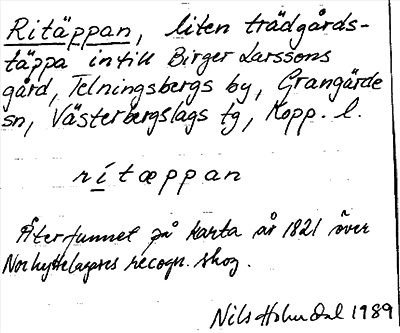 Ritäppan, liten trädgårds-
täppa intill Birger Larssons
gård, Telningsbergs by, Grangärde
sn, Västerbergslags tg, Kopp. l.
rítæppan
Återfunnet på karta år 1821 över
recogn. skog.
Nils 1989